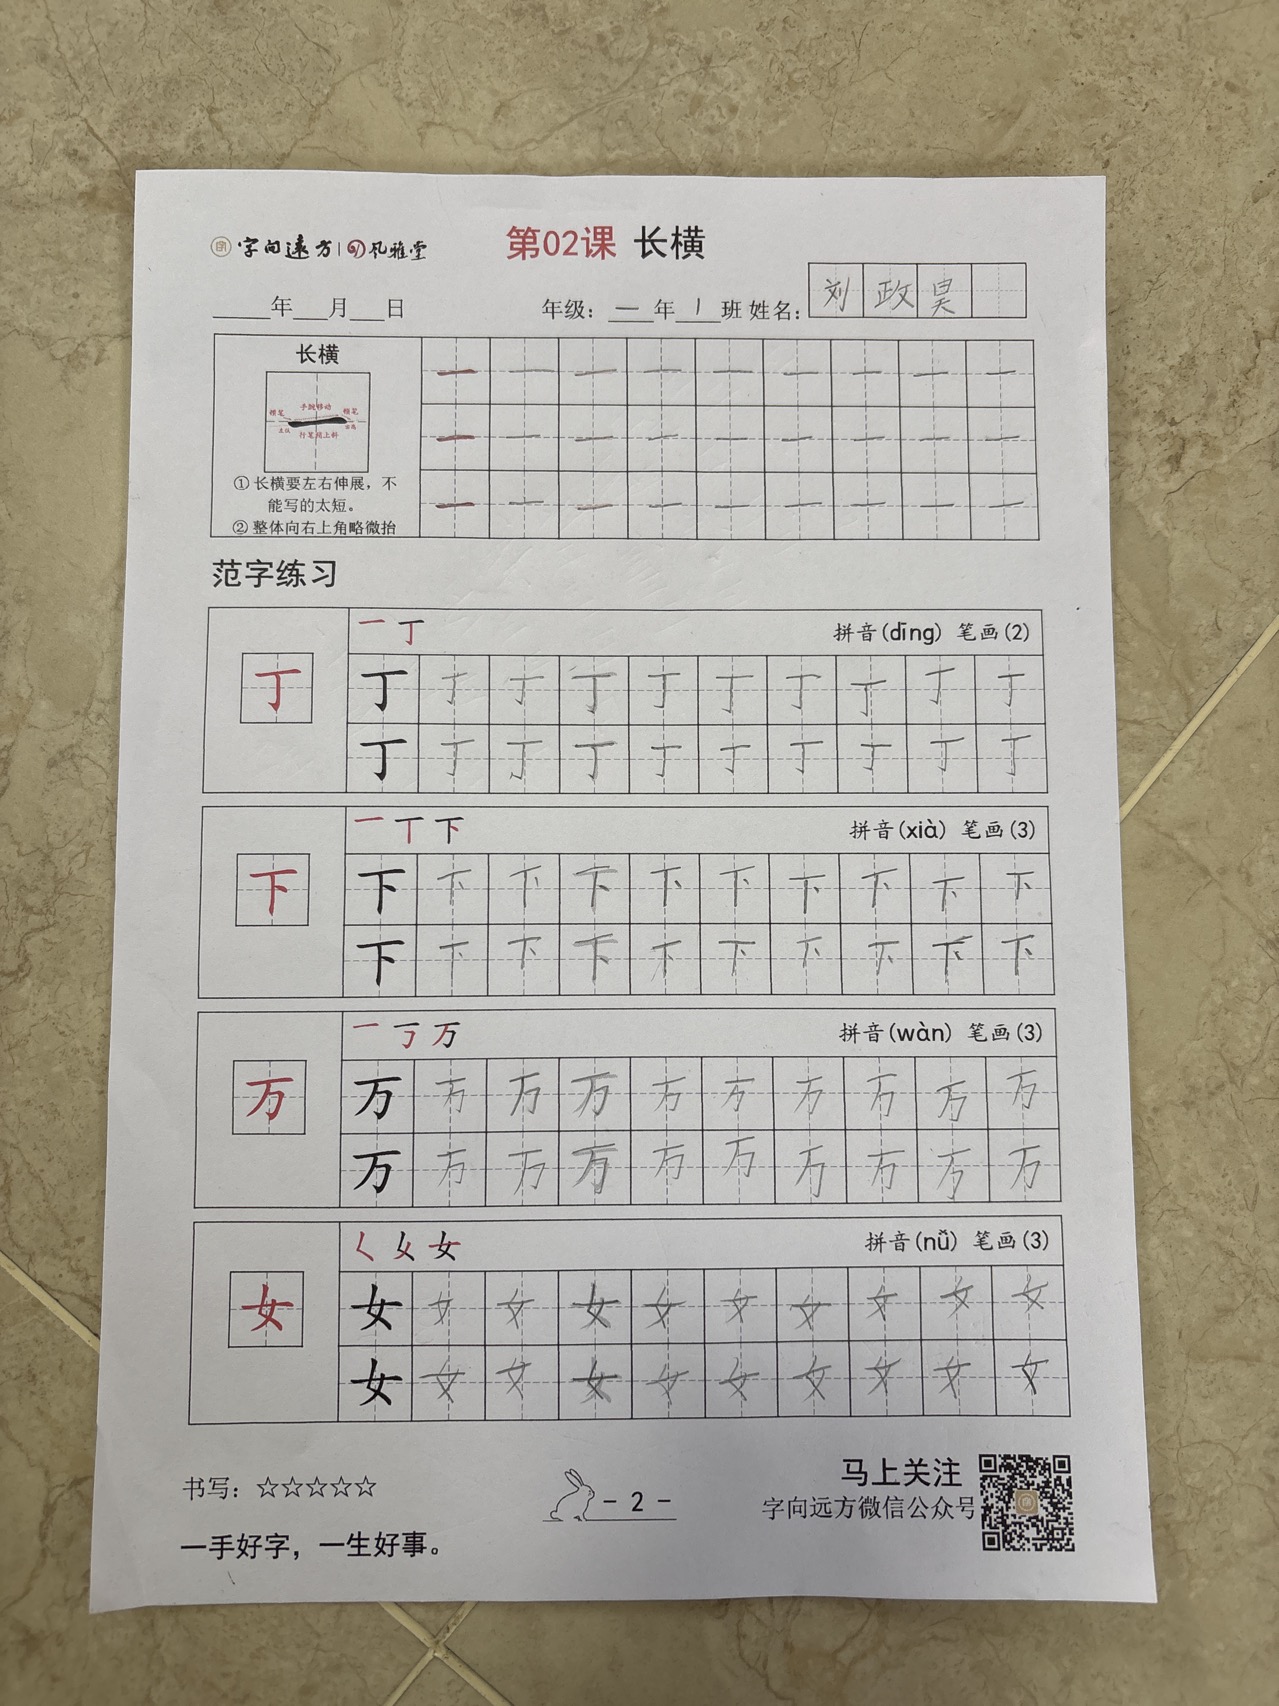 字向远方 | 风雅堂
第02课 长横
_____年___月___日 年级：一年1班 姓名：刘政昊
长横
手腕移动
顿笔 顿笔
行笔稍上斜
① 长横要左右伸展，不
能写的太短。
② 整体向右上角略微抬
一 一 一 一 一 一 一 一 一
一 一 一 一 一 一 一 一 一
一 一 一 一 一 一 一 一 一
范字练习
一 丁 拼音(dīng) 笔画(2)
丁
丁 丁 丁 丁 丁 丁 丁 丁 丁 丁
丁 丁 丁 丁 丁 丁 丁 丁 丁 丁
一 丅 下 拼音(xià) 笔画(3)
下
下 下 下 下 下 下 下 下 下 下
下 下 下 下 下 下 下 下 下 下
一 丂 万 拼音(wàn) 笔画(3)
万
万 万 万 万 万 万 万 万 万 万
万 万 万 万 万 万 万 万 万 万
𡿨 女 拼音(nǚ) 笔画(3)
女
女 女 女 女 女 女 女 女 女 女
女 女 女 女 女 女 女 女 女 女
书写：☆☆☆☆☆
- 2 -
马上关注
字向远方微信公众号
一手好字，一生好事。